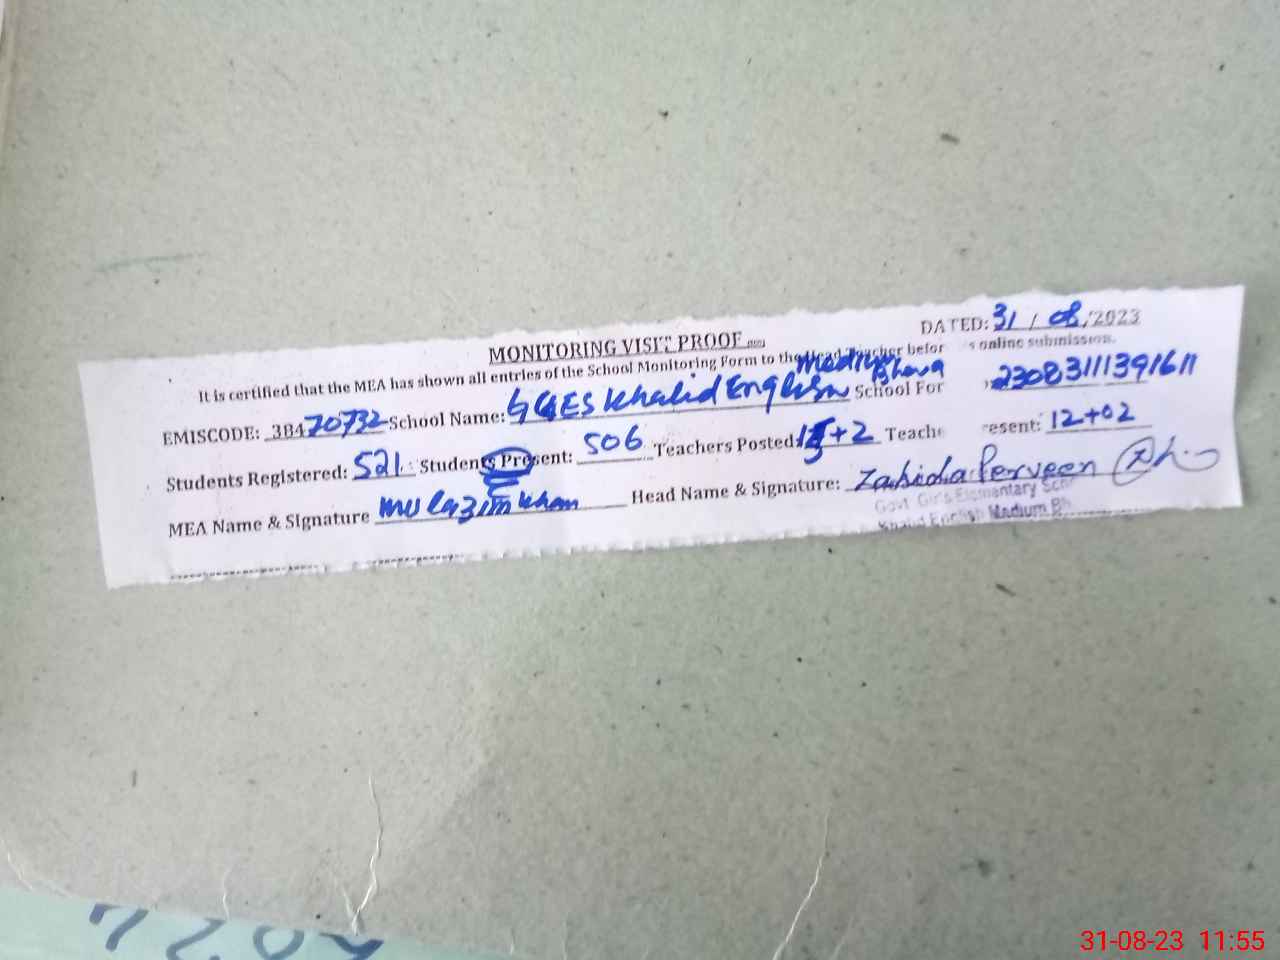 DATED: 31 / 08 /2023
MONITORING VISIT PROOF
It is certified that the MEA has shown all entries of the School Monitoring Form to the Head Teacher befor s online submission.
EMISCODE: 38470732 School Name: GGES Khalid English Medium School For 23083111391611
Students Registered: 521 Students Present: 506 Teachers Posted: +2 Teache esent: 12+02
MEA Name & Signature Mulazim Khan Head Name & Signature: Zahida Perveen
Govt Girls Elementary Sch
Khalid English Medium Bh
31-08-23 11:55